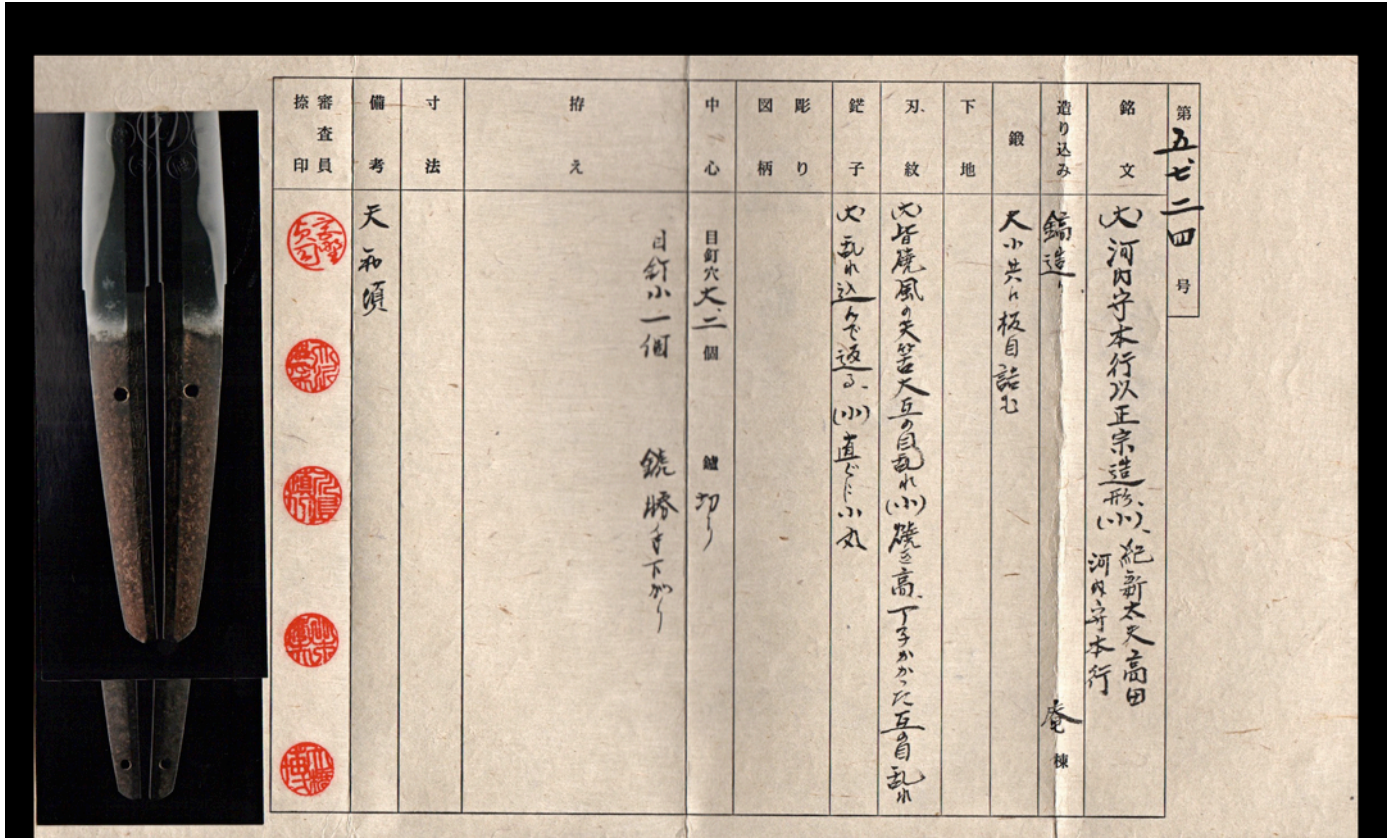 第五七二四号
銘文
(大)河内守本行以正宗造形、(小)、紀新太夫高田
河内守本行
造り込み
鎬造り 庵棟
鍛
大小共に板目詰む
下地
刃紋
(大)皆焼風の矢筈大互の目乱れ(小)焼き高、丁子かかった互の目乱れ
鋩子
(大)乱れ込んで返る、(小)直ぐに小丸
彫り
図柄
中心
目釘穴大、二個 鑢切り
目釘小一個 鑢勝手下がり
拵え
寸法
備考
天和頃
審査員
捺印